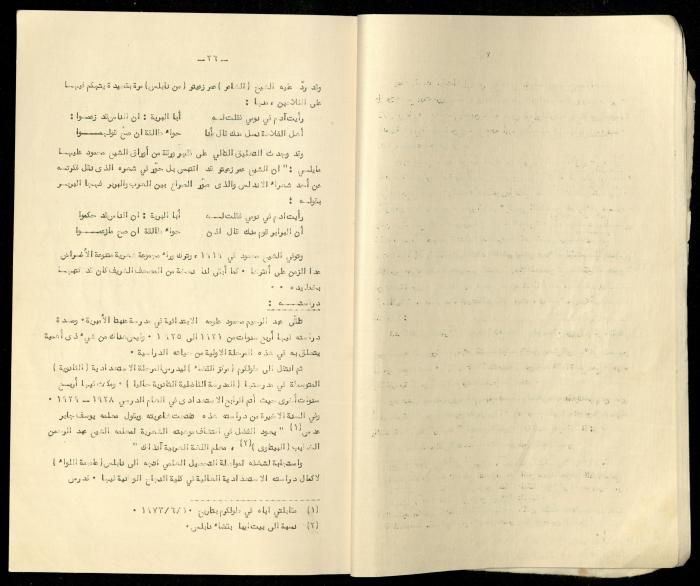 ـ ٢٦ ـ
وقد ردّ عليه الشيخ (الشاعر) عمر زعيتر (من نابلس) مرة بقصيدة يتهكم فيها
على الفلاحين، منها :
رأيت آدم في نومي فقلت له        أبا البرية : ان الناس قد زعموا :
أهل الفلاحة نسل منك قال أنا        حواء طالقة ان صح
وقد وجدت التعليق التالي على ظهر ورقة من أوراق الشيخ محمود عليها
مايلي : " ان الشيخ عمر زعيتر قد اقتبس بل حوّر في شعره الذى نقل فكرته
عن أحد شعراء الاندلس والذى صوّر الصراع بين العرب والبربر فهجا البربر
بقوله :
رأيت آدم في نومي فقلت له        أبا البرية : ان الناس قد حكموا
أن البرابر قوم منك قال اذن        حواء طالقة ان صح مازعموا
وتوفي الشيخ محمود في ١٩١٩، وترك وراءه مجموعة شعرية متنوعة الأغراض
عدا الزمن على أكثرها ٠ كما أبقى لنا نسخة من المصحف الشريف كان قد كتبها
بخط يده ٠ ٠
دراسته :
تلقّى عبد الرحيم محمود علومه الابتدائية في مدرسة عنبتا الأميرية ٠ ومدة
دراسته فيها أربع سنوات من ١٩٢١ الى ١٩٢٥ ٠ وليس هناك من شيء ذى أهمية
يتعلق به في هذه المرحلة الاولية من حياته الدراسية ٠
ثم انتقل الى طولكرم (مركز القضاء) ليدرس المرحلة الاستعدادية (الثانوية)
المتوسطة في مدرستها (المدرسة الفاضلية الثانوية حاليا) ٠ ومكث فيها أربع
سنوات أخرى حيث أتم الرابع الاستعدادى في العام الدرسي ١٩٢٨ ــ ١٩٢٩ ٠
وفي السنة الاخيرة من دراسته هذه تفتحت شاعريته ويقول معلمه يوسف جابر
عدس (١) " يعود الفضل في اكتشاف موهبته الشعرية لمعلمه الشيخ عبد الرحمن
الخطيب (البيتاوى) (٢)، معلم اللغة العربية آنذاك "
واستجابة لشغفه لمواصلة التحصيل العلمي اتجه الى نابلس (عاصمة اللواء)
لاكمال دراسته الاستعدادية العالية في كلية النجاح الوطنية فيها ٠ فدرس
(١) مقابلتي اياه في طولكرم بتاريخ ١٠/٦/١٩٧٣ ٠
(٢) نسبة الى بيت ايبا بقضاء نابلس ٠